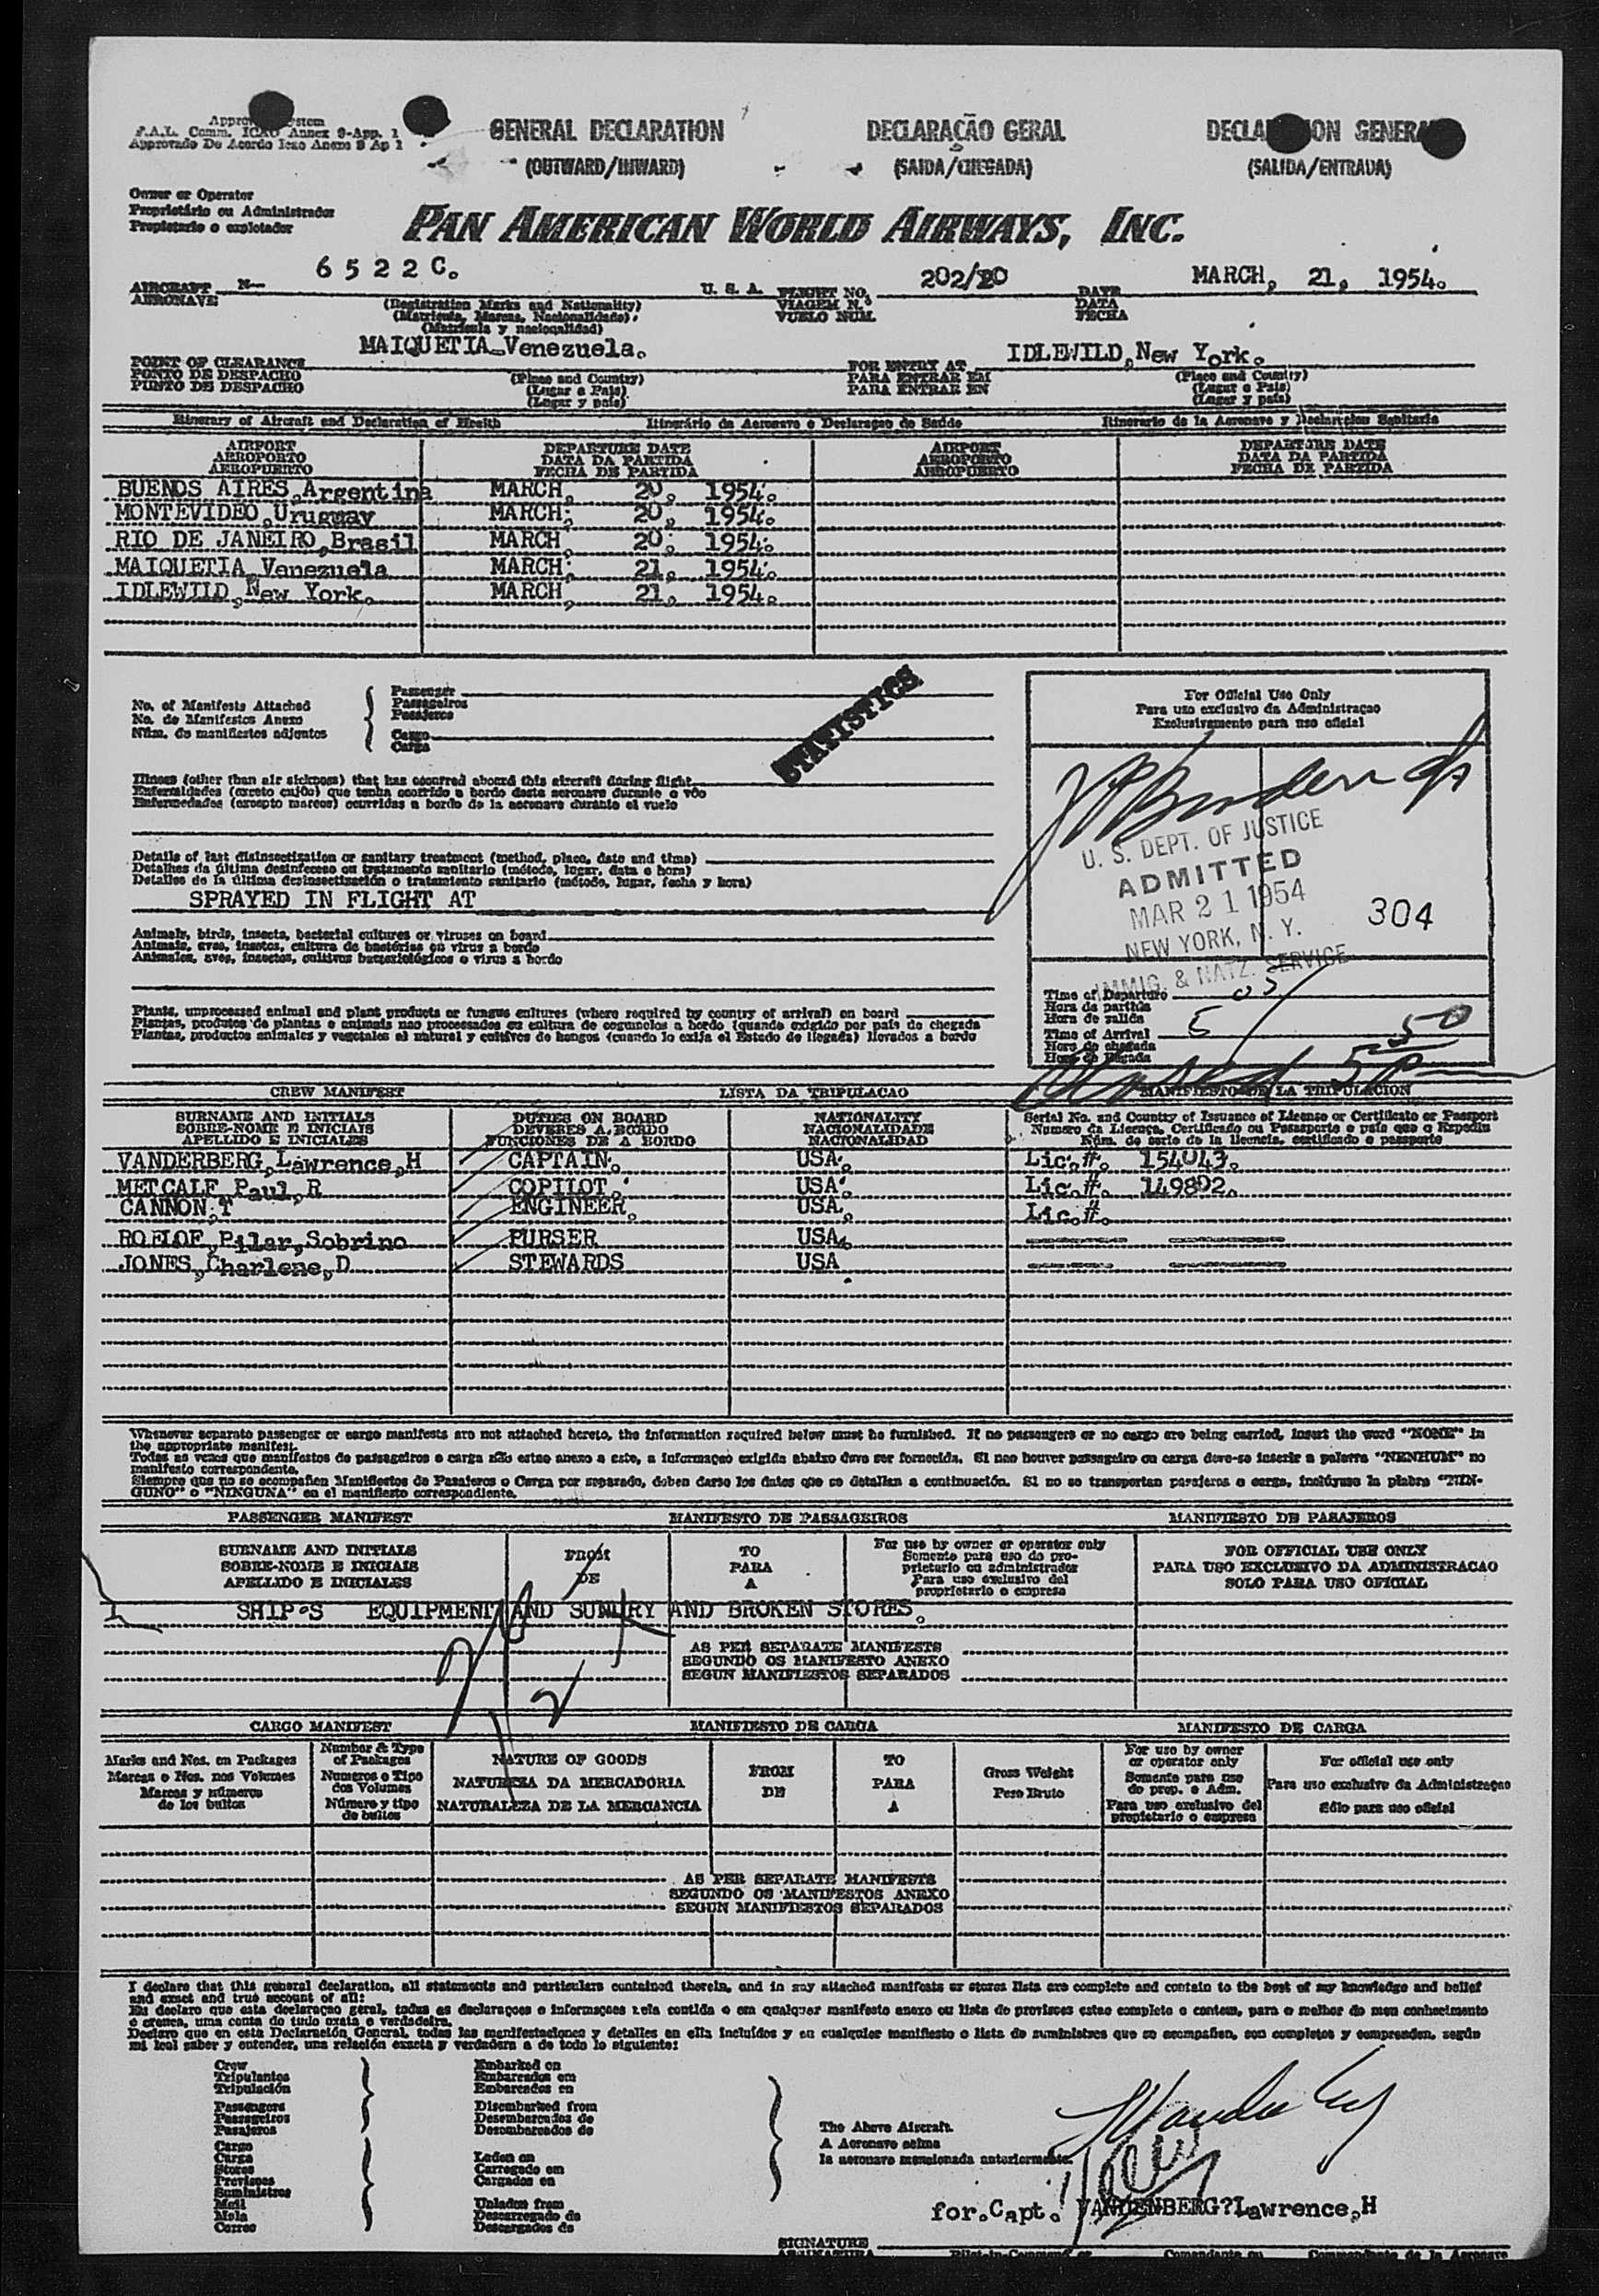 F.A.L. Comm. ICAO Annex 9-App. 1
Aprovado De Acordo Icao Anexo 9 Ap 1
GENERAL DECLARATION DECLARAÇÃO GERAL
(OUTWARD/INWARD) (SAIDA/CHEGADA) (SALIDA/ENTRADA)
Owner or Operator
Proprietário ou Administrador
Propietario o explotador
PAN AMERICAN WORLD AIRWAYS, INC.
AIRCRAFT N- 6522C. U. S. A. FLIGHT NO. 202/20 DATE MARCH, 21, 1954.
AERONAVE (Registration Marks and Nationality) VIAGEM N.º DATA
(Matricula, Marcas, Nacionalidade) VUELO NUM. FECHA
(Matrícula y nacionalidad)
POINT OF CLEARANCE MAIQUETIA-Venezuela. FOR ENTRY AT IDLEWILD,New York.
PONTO DE DESPACHO (Place and Country) PARA ENTRAR EM (Place and Country)
PUNTO DE DESPACHO (Lugar e País) PARA ENTRAR EN (Lugar e País)
(Lugar y país) (Lugar y país)
Itinerary of Aircraft and Declaration of Health Itinerário da Aeronave e Declaraçao de Saúde Itinerario de la Aeronave y Declaracion Sanitaria
AIRPORT DEPARTURE DATE AIRPORT DEPARTURE DATE
AEROPORTO DATA DA PARTIDA AEROPORTO DATA DA PARTIDA
AEROPUERTO FECHA DE PARTIDA AEROPUERTO FECHA DE PARTIDA
BUENOS AIRES,Argentina MARCH, 20, 1954.
MONTEVIDEO,Uruguay MARCH, 20, 1954.
RIO DE JANEIRO,Brasil MARCH, 20, 1954.
MAIQUETIA,Venezuela MARCH, 21, 1954.
IDLEWILD,New York. MARCH, 21, 1954.
No. of Manifests Attached
No. de Manifestos Anexo
Núm. de manifiestos adjuntos
Passenger
Passageiros
Pasajeros
Cargo
Carga
STATISTICS
For Official Use Only
Para uso exclusivo da Administraçao
Exclusivamente para uso oficial
Illness (other than air sickness) that has occurred aboard this aircraft during flight
Enfermidades (exceto enjôo) que tenha ocorrido a bordo desta aeronave durante o vôo
Enfermedades (excepto mareos) ocurridas a bordo de la aeronave durante el vuelo
U. S. DEPT. OF JUSTICE
ADMITTED
MAR 21 1954
NEW YORK, N. Y.
IMMIG. & NATZ. SERVICE
304
Details of last disinsectization or sanitary treatment (method, place, date and time)
Detalhes da última desinfeceao ou tratamento sanitario (método, lugar, data e hora)
Detalles de la última desinsectización o tratamiento sanitario (método, lugar, fecha y hora)
SPRAYED IN FLIGHT AT
Animals, birds, insects, bacterial cultures or viruses on board
Animais, aves, insetos, cultura de bactérias ou virus a bordo
Animales, aves, insectos, cultivos bacteriológicos o virus a bordo
Plants, unprocessed animal and plant products or fungus cultures (where required by country of arrival) on board
Plantas, produtos de plantas e animais nao processados ou cultura de cogumelos a bordo (quando exigido por país de chegada
Plantas, productos animales y vegetales al natural y cultivos de hongos (cuando lo exija el Estado de llegada) llevados a bordo
Time of Departure
Hora de partida
Hora de salida
Time of Arrival
Hora de chegada
Hora de llegada
CREW MANIFEST LISTA DA TRIPULACAO MANIFIESTO DE LA TRIPULACION
SURNAME AND INITIALS DUTIES ON BOARD NATIONALITY Serial No. and Country of Issuance of License or Certificate or Passport
SOBRE-NOME E INICIAIS DEVERES A BORDO NACIONALIDADE Numero da Licença, Certificado ou Passaporte e país que o Expediu
APELLIDO E INICIALES FUNCIONES DE A BORDO NACIONALIDAD Núm. de serie de la licencia, certificado o pasaporte
VANDERBERG,Lawrence,H CAPTAIN. USA. Lic.#. 154043.
METCALF,Paul,R COPILOT. USA. Lic.#. 149892.
CANNON,T ENGINEER. USA. Lic.#.
ROELOF,Pilar,Sobrino PURSER USA.
JONES,Charlene,D STEWARDS USA.
Whenever separate passenger or cargo manifests are not attached hereto, the information required below must be furnished. If no passengers or no cargo are being carried, insert the word "NONE" in
the appropriate manifest.
Todas as vezes que manifestos de passageiros e carga não estao anexo a este, a informaçao exigida abaixo deve ser fornecida. Si nao houver passageiro ou carga deve-se inserir a palavra "NENHUM" no
manifesto correspondente.
Siempre que no se acompañen Manifiestos de Pasajeros o Carga por separado, deben darse los datos que se detallan a continuación. Si no se transportan pasajeros o carga, inclúyase la plabra "NIN-
GUNO" o "NINGUNA" en el manifiesto correspondiente.
PASSENGER MANIFEST MANIFESTO DE PASSAGEIROS MANIFIESTO DE PASAJEROS
SURNAME AND INITIALS FROM TO For use by owner or operator only FOR OFFICIAL USE ONLY
SOBRE-NOME E INICIAIS DE PARA Somente para uso do pro- PARA USO EXCLUSIVO DA ADMINISTRACAO
APELLIDO E INICIALES A prietario ou administrador SOLO PARA USO OFICIAL
Para uso exclusivo del
proprietario o empresa
SHIP'S EQUIPMENT AND SUNDRY AND BROKEN STORES.
AS PER SEPARATE MANIFESTS
SEGUNDO OS MANIFESTO ANEXO
SEGUN MANIFIESTOS SEPARADOS
CARGO MANIFEST MANIFIESTO DE CARGA MANIFESTO DE CARGA
Marks and Nos. on Packages
Marcas e Nos. nos Volumes
Marcas y números
de los bultos
Number & Type
of Packages
Numeros e Tipo
dos Volumes
Número y tipo
de bultos
NATURE OF GOODS
NATUREZA DA MERCADORIA
NATURALEZA DE LA MERCANCIA
FROM
DE
TO
PARA
A
Gross Weight
Peso Bruto
For use by owner
or operator only
Somente para use
do prop. e Adm.
Para uso exclusivo del
propietario o empresa
For official use only
Para uso exclusivo da Administraçao
Sólo para uso oficial
AS PER SEPARATE MANIFESTS
SEGUNDO OS MANIFESTOS ANEXO
SEGUN MANIFIESTOS SEPARADOS
I declare that this general declaration, all statements and particulars contained therein, and in any attached manifests or stores lists are complete and contain to the best of my knowledge and belief
and exact and true account of all:
Eu declaro que esta declaraçao geral, todas as declaraçoes e informaçoes nela contida e em qualquer manifesto anexo ou lista de provisoes estao completo e contem, para o melhor do meu conhecimento
e crenca, uma conta do tudo exata e verdadeira.
Declaro que en esta Declaración General, todas las manifestaciones y detalles en ella incluídos y en cualquier manifiesto o lista de suministros que se acompañen, son completos y comprenden, según
mi leal saber y entender, una relación exacta y verdadera a de todo lo siguiente:
Crew Embarked on
Tripulantes Embarcados em
Tripulación Embarcados en
Passengers Disembarked from
Passageiros Desembarcados de
Pasajeros Desembarcados de
Cargo
Carga Laden on
Stores Carregado em
Provisoes Cargados en
Suministros
Mail Unladen from
Mala Descarregado de
Correo Descargados de
The Above Aircraft.
A Aeronave acima
la aeronave mencionada anteriormente.
for.Capt. VANDENBERG?Lawrence,H
SIGNATURE